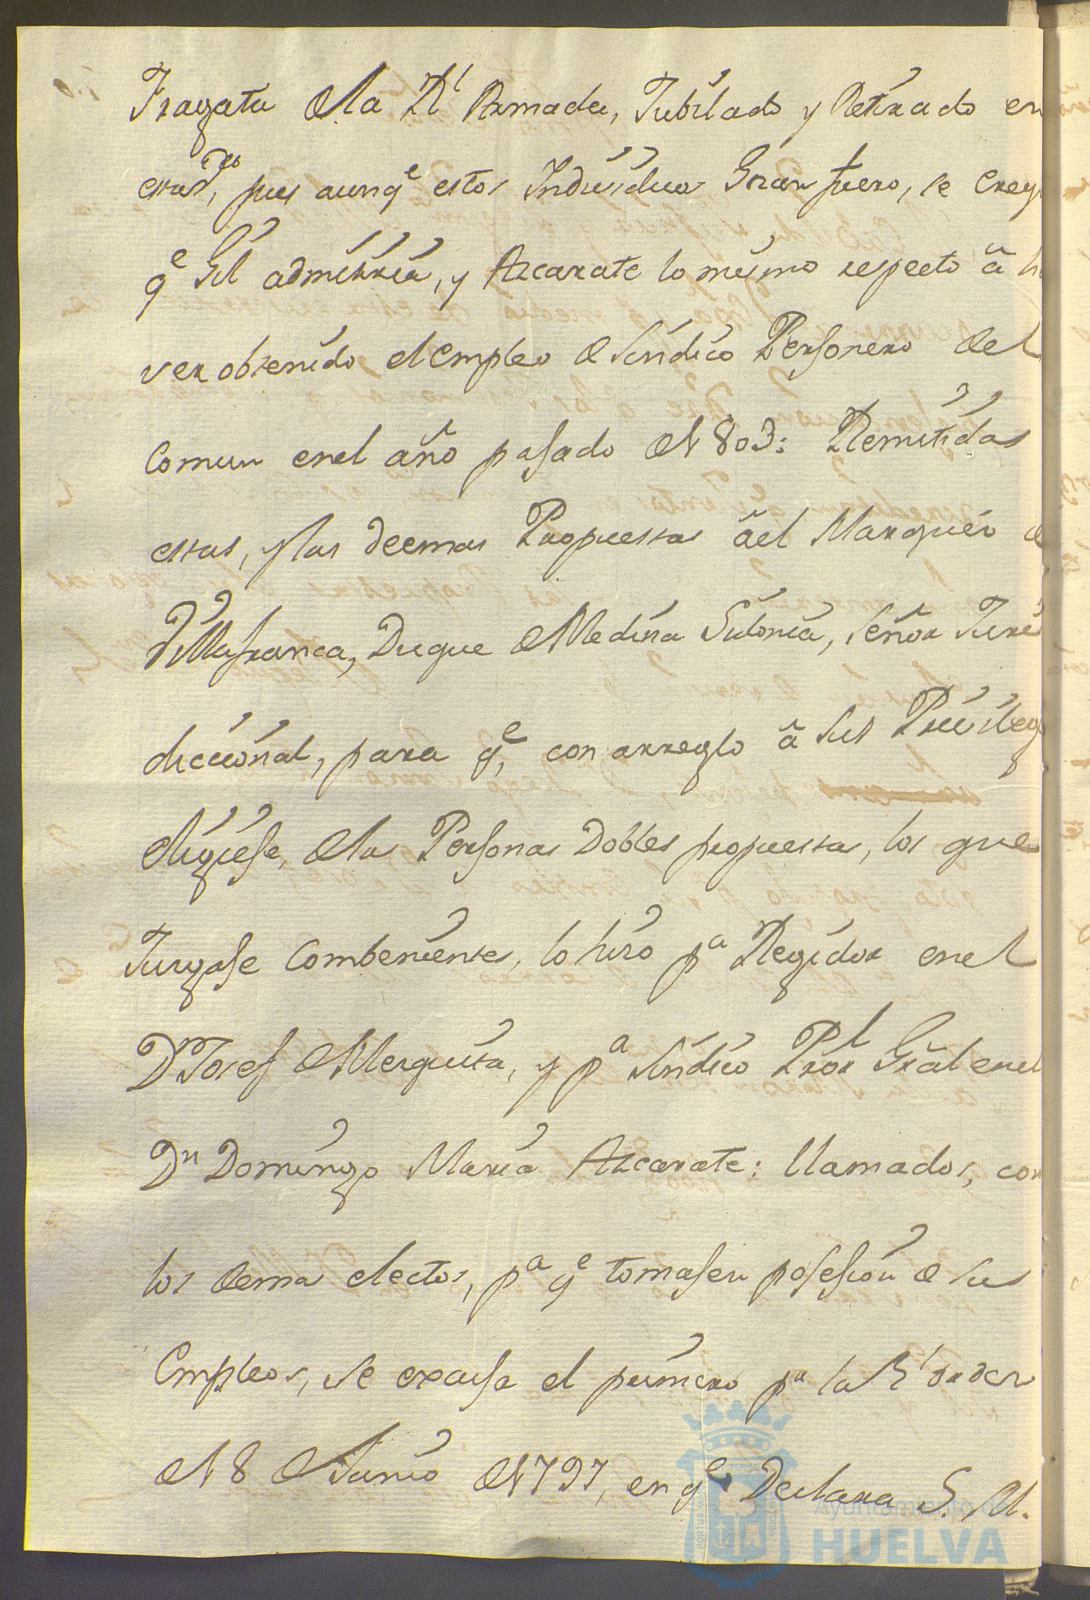 Fragata de la Rl Armada, Jubilado y Retirado en
esta, pues aunqe estos Individuos Gozan fuero, se crey
qe Gil admitiria, y Azcarate lo mismo respecto â ha
ver obtenido el empleo de Sindico Personero del
Comun en el año pasado de 1803: Remitidas
estas, y las demas Propuestas âel Marques de
Villafranca, Duque de Medina Sidonia, Señor Juris
diccional, para qe, con arreglo â sus Privileg
eligiese, de las Personas Dobles propuestas, los que
Jusgase Combenientes, lo hizo pa Regidor en el
Dn Josef de Mesquita, y pa Sindico Pror Gral en el
Dn Domingo Maria Azcarate: llamados, con
los demas electos, pa qe tomasen posesion de sus
Empleos, se excusa el primero pr la Rl orden
de 18 de Junio de 1797, en qe Declara S. M.
Ayuntamiento de
HUELVA